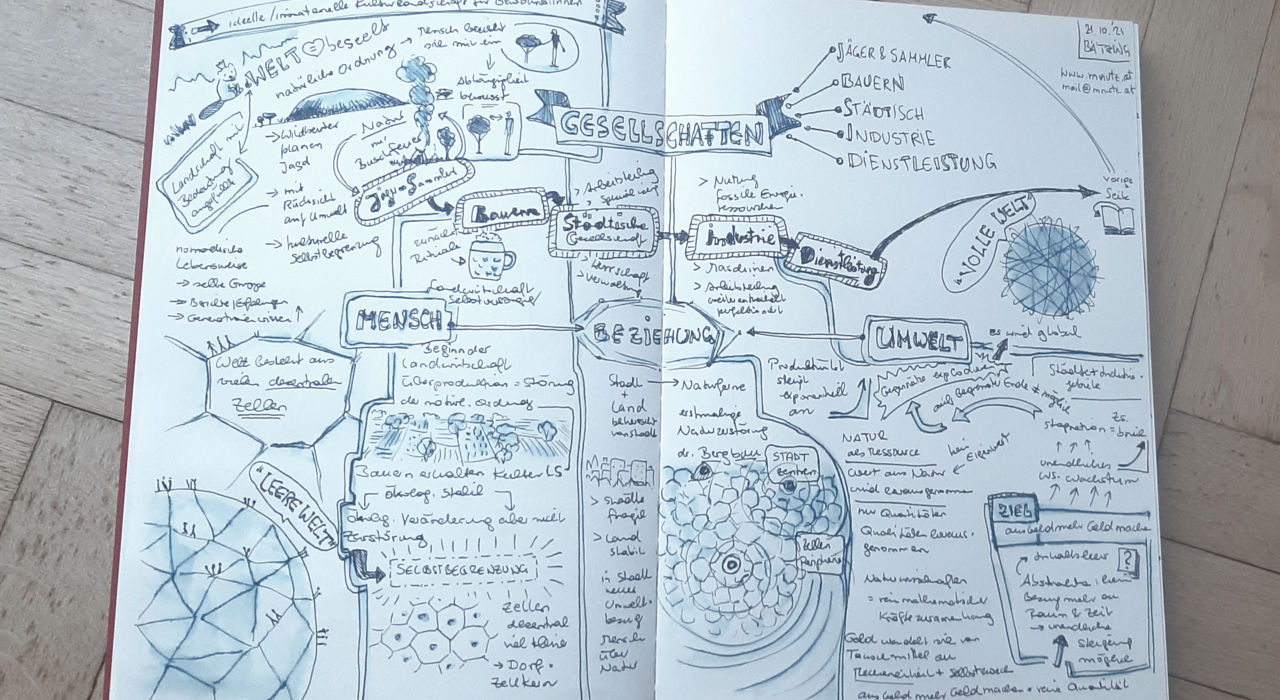 ideelle/immaterielle Kulturlandschaft für BewohnerInnen
WELT beseelt
natürliche Ordnung
→ Mensch bewirkt
sie mit ein
Abhängigkeit
bewusst
Landschaft mit
Bedeutung
angefüllt
→ Wildbeuter
planen
Jagd
→ mit
Rücksicht
auf Umwelt
→ kulturelle
Selbstbegrenzung
Natur
mit
Buschfeuer
nomadische
Lebensweise
→ selbe Gruppe
Welt besteht aus
vielen dezentralen
Zellen
"LEERE WELT"
GESELLSCHAFTEN
JÄGER & SAMMLER
BAUERN
STÄDTISCH
INDUSTRIE
DIENSTLEISTUNG
21.10.'21
BÄTZING
www.mnutz.at
mail@mnutz.at
vorige
Seite
Jäger + Sammler
Bauern
Städtische
Gesellschaft
Industrie
Dienstleistung
> Arbeitsteilung
> Spezialisierung
> Herrschaft
> Verwaltung
> Nutzung
Fossile Energie-
ressourcen
> Maschinen
> Arbeitsteilung
weiterentwickelt
perfektioniert
Rituale
Landwirtschaft
"VOLLE WELT"
es wird global
MENSCH
BEZIEHUNG
UMWELT
Beginn der
Landwirtschaft
Überproduktion = Störung
der natürl. Ordnung
Bauern erhalten Kultur LS
ökolog. stabil
ökolog. Veränderung aber nicht
Zerstörung
SELBSTBEGRENZUNG
Zellen
dezentral
viele kleine
→ Dorf =
Zellkern
Stadt
+
Land
beherrscht
von Stadt
> Städte
fragil
> Land
stabil
in Stadt
neuer
Umwelt-
bezug
Mensch
über
Natur
→ Naturferne
erstmalige
Naturzerstörung
dr. Bergbau
STADT
Zentren
Zellen
Peripherie
Produktivität
steigt
exponentiell
an
Gegenwart explodiert
auf begrenzte Erde ≠ möglich
kein
Eigenwert
NATUR
als Ressource
Wert aus Natur
wird herausgenommen
nur Quantitäten
Qualitäten heraus-
genommen
Naturwissenschaften
= rein mathematischer
Kräftezusammenhang
Geld wandelt sich von
Tauschmittel zu
Recheneinheit + Selbstzweck
aus Geld mehr Geld machen = reine Quantität
Stagnation =
unendliches
WS. Wachstum
ZIEL
aus Geld mehr Geld machen
inhaltsleer
?
Abstraktes kein
Bezug mehr zu
Raum & Zeit
→ unendliche
Steigerung
möglich